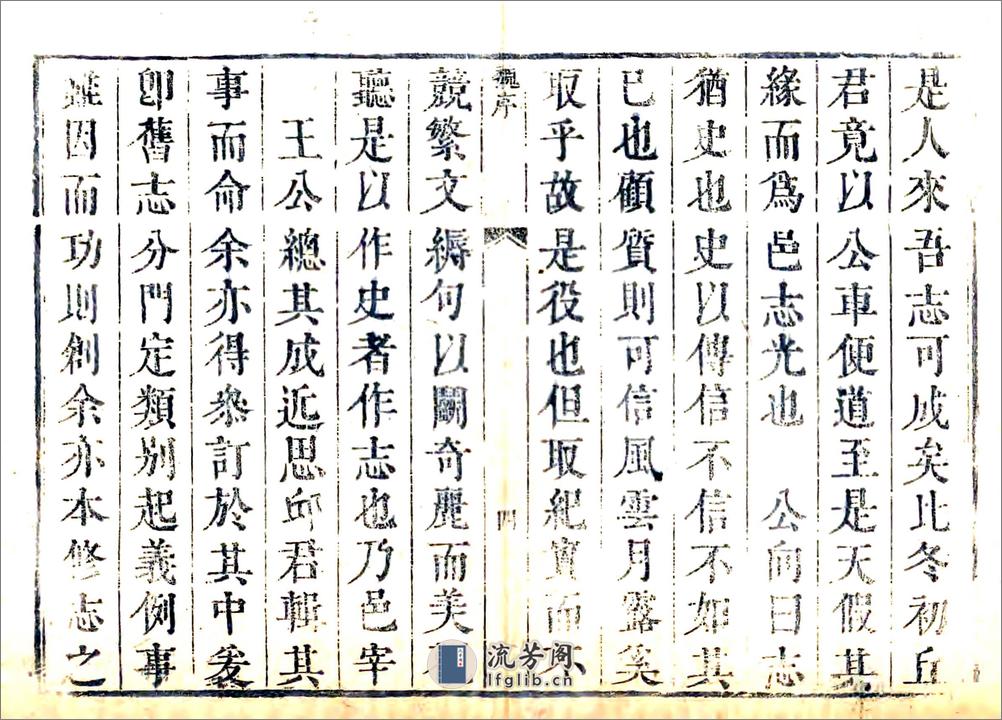 是人來吾志可成矣比冬初丘
君竟以公車便道至是天假其
緣而爲邑志光也　公向曰志
猶史也史以傳信不信不如其
已也顧質則可信風雲月露奚
取乎故是役也但取紀實而不
觀序
四
競繁文縟句以鬭奇麗而美
聽是以作史者作志也乃邑宰
王公總其成近思邱君輯其
事而命余亦得叅訂於其中爰
卽舊志分門定類別起義例事
雖因而功則創余亦本修志之
流芳阁
lfglib.cn